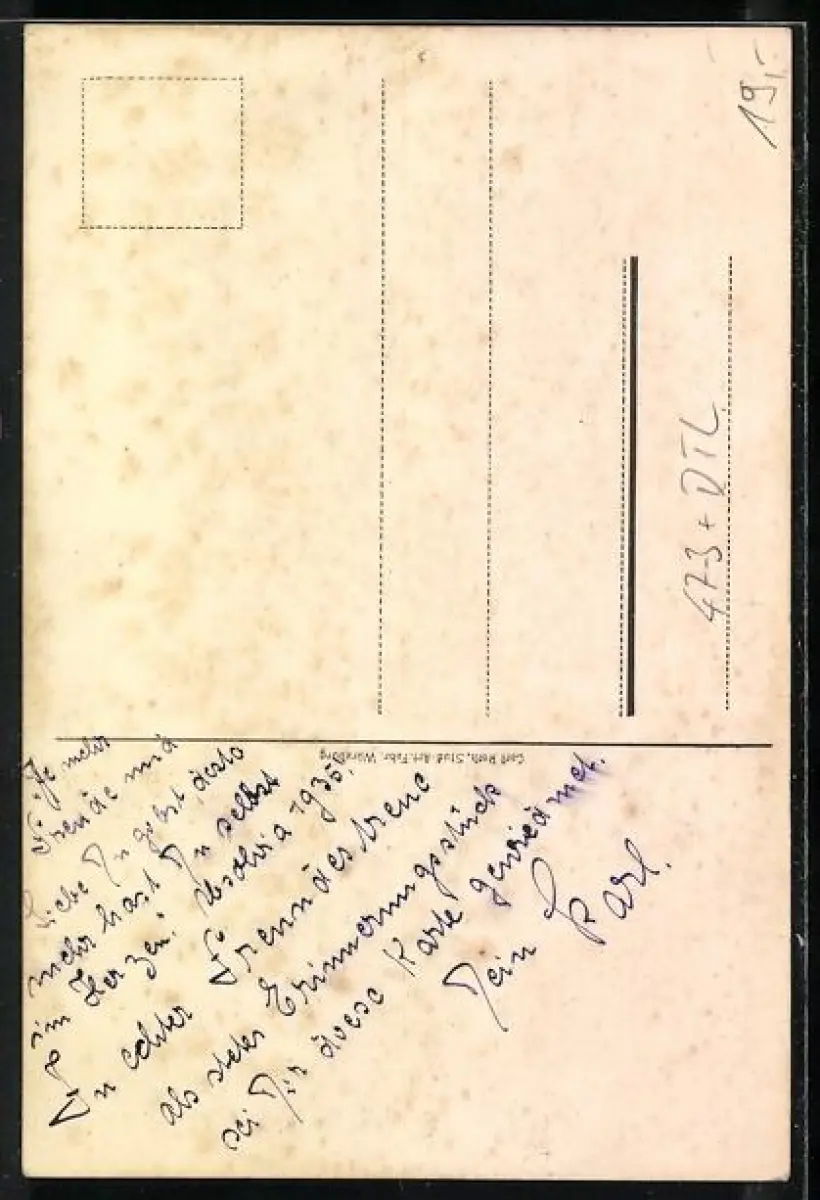 19,-
473 + DTL
Carl Roth, Stud.-Art.-Fabr. Würzburg
Je mehr
Freude und
Liebe Du gibst desto
mehr hast Du selbst
im Herzen! Absolvia 1935.
In echter Freundestreue
als stetes Erinnerungsstück
sei Dir diese Karte gewidmet.
Dein Karl.